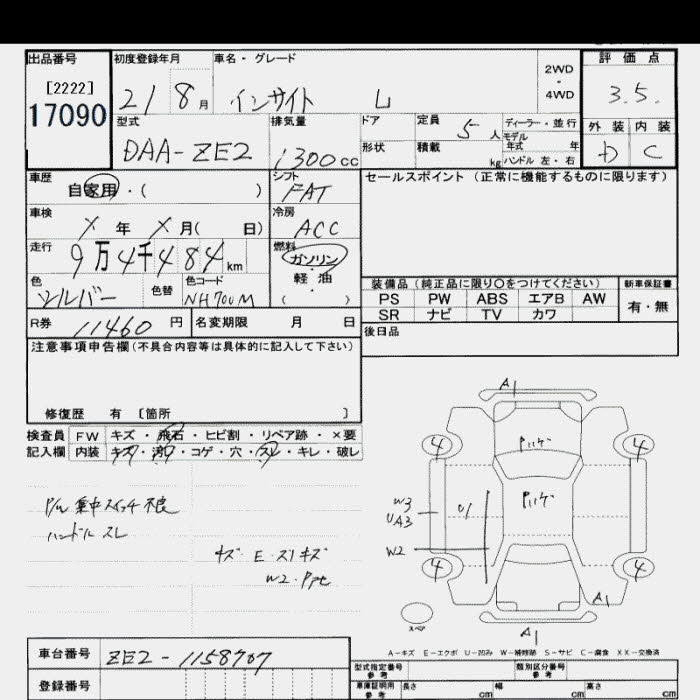 出品番号 初度登録年月 車名・グレード 2WD・4WD 評価点
[2222]
17090
21 8月 インサイト L 3.5.
型式 排気量 ドア 定員 5人 ディーラー・並行 外装 内装
モデル
年式 年
DAA-ZE2 1300cc 形状 積載 kg ハンドル 左・右 D C
車歴 シフト セールスポイント(正常に機能するものに限ります)
自家用・( ) FAT
車検 冷房
X 年 X 月( 日) ACC
走行 燃料
9万4千484km ガソリン
・
軽油
色 色替 色コード ( ) 装備品(純正品に限り○をつけてください) 新車保証書
シルバー NH700M PS PW ABS エアB AW 有・無
SR ナビ TV カワ
R券 11460 円 名変期限 月 日 後日品
注意事項申告欄(不具合内容等は具体的に記入して下さい)
修復歴 有 〔箇所 〕
検査員 FW キズ・飛石・ヒビ割・リペア跡・×要
記入欄 内装 キズ・汚れ・コゲ・穴・スレ・キレ・破レ
P/W 集中スイッチ不良
ハンドル スレ
キズ E・スリキズ
A1
4 4
W3
UA3
U1
W2
4 4
A1
スペア A1
A-キズ E-エクボ U-凹み W-補修跡 S-サビ C-腐食 XX-交換済
車台番号 ZE2-1158707 型式指定番号 参考 類別区分番号 参考
登録番号 車庫証明用 参考 長さ cm 幅 cm 高さ cm